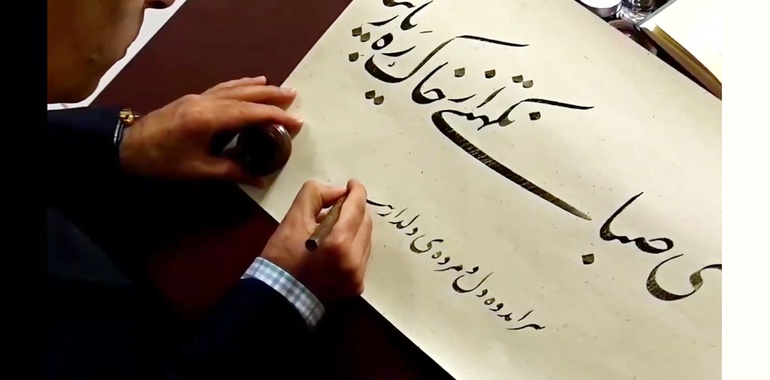 ی صبا نکهتی از خاک ره یار
ببر اندوه دل و مژده‌ی دلدار